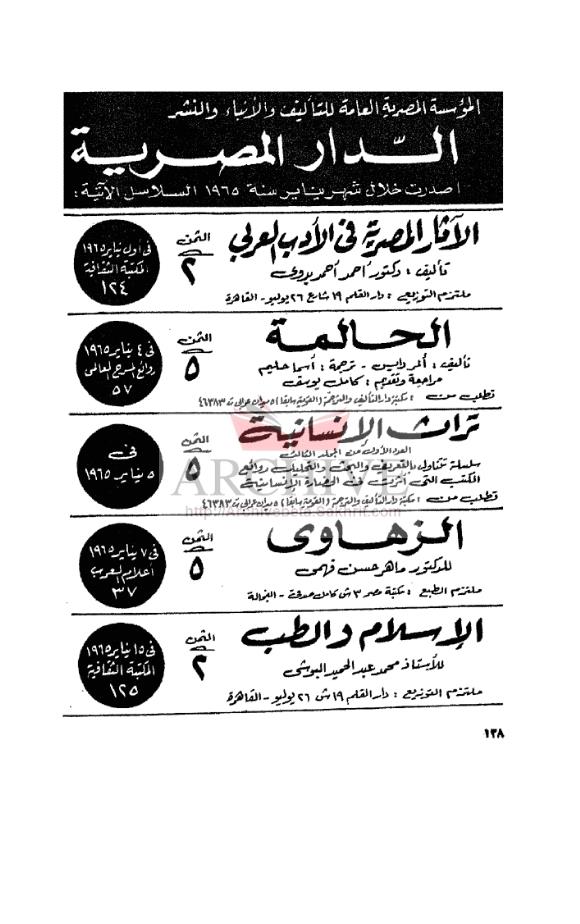 المؤسسة المصرية العامة للتأليف والأنباء والنشر
الدار المصرية
أصدرت خلال شهر يناير سنة ١٩٦٥ السلاسل الآتية :
الآثار المصرية فى الأدب العربى
تأليف : دكتور أحمد أحمد بدوى
ملتزم التوزيع : دار القلم ١٩ شارع ٢٦ يوليو - القاهرة
الثمن
٢
فى أول يناير ١٩٦٥
المكتبة الثقافية
١٢٤
الحالمة
تأليف : ألمر رايس - ترجمة : أسما حليم
مراجعة وتقديم : كامل يوسف
تطلب من : مكتبة دار التأليف والترجمة (القومية سابقا) ٥ ميدان عرابى ت ٤٦٣٨٣
الثمن
٥
فى ٤ يناير ١٩٦٥
روائع المسرح العالمى
٥٧
تراث الإنسانية
العدد الأول من المجلد الثالث
سلسلة تتناول بالتعريف والبحث والتحليل روائع
الكتب التى أثرت فى الحضارة الإنسانية
تطلب من : مكتبة دار التأليف والترجمة (القومية سابقا) ٥ ميدان عرابى ت ٤٦٣٨٣
الثمن
٥
فى
٥ يناير ١٩٦٥
ARCHIVE
الزهاوى
للدكتور ماهر حسن فهمى
ملتزم الطبع : مكتبة مصر ٣ ش كامل صدقى - الفجالة
الثمن
٥
فى ٧ يناير ١٩٦٥
أعلام العرب
٣٧
الإسلام والطب
للأستاذ محمد عبد الحميد البوشى
ملتزم التوزيع : دار القلم ١٩ ش ٢٦ يوليو - القاهرة
الثمن
٢
فى ١٥ يناير ١٩٦٥
المكتبة الثقافية
١٢٥
١٣٨